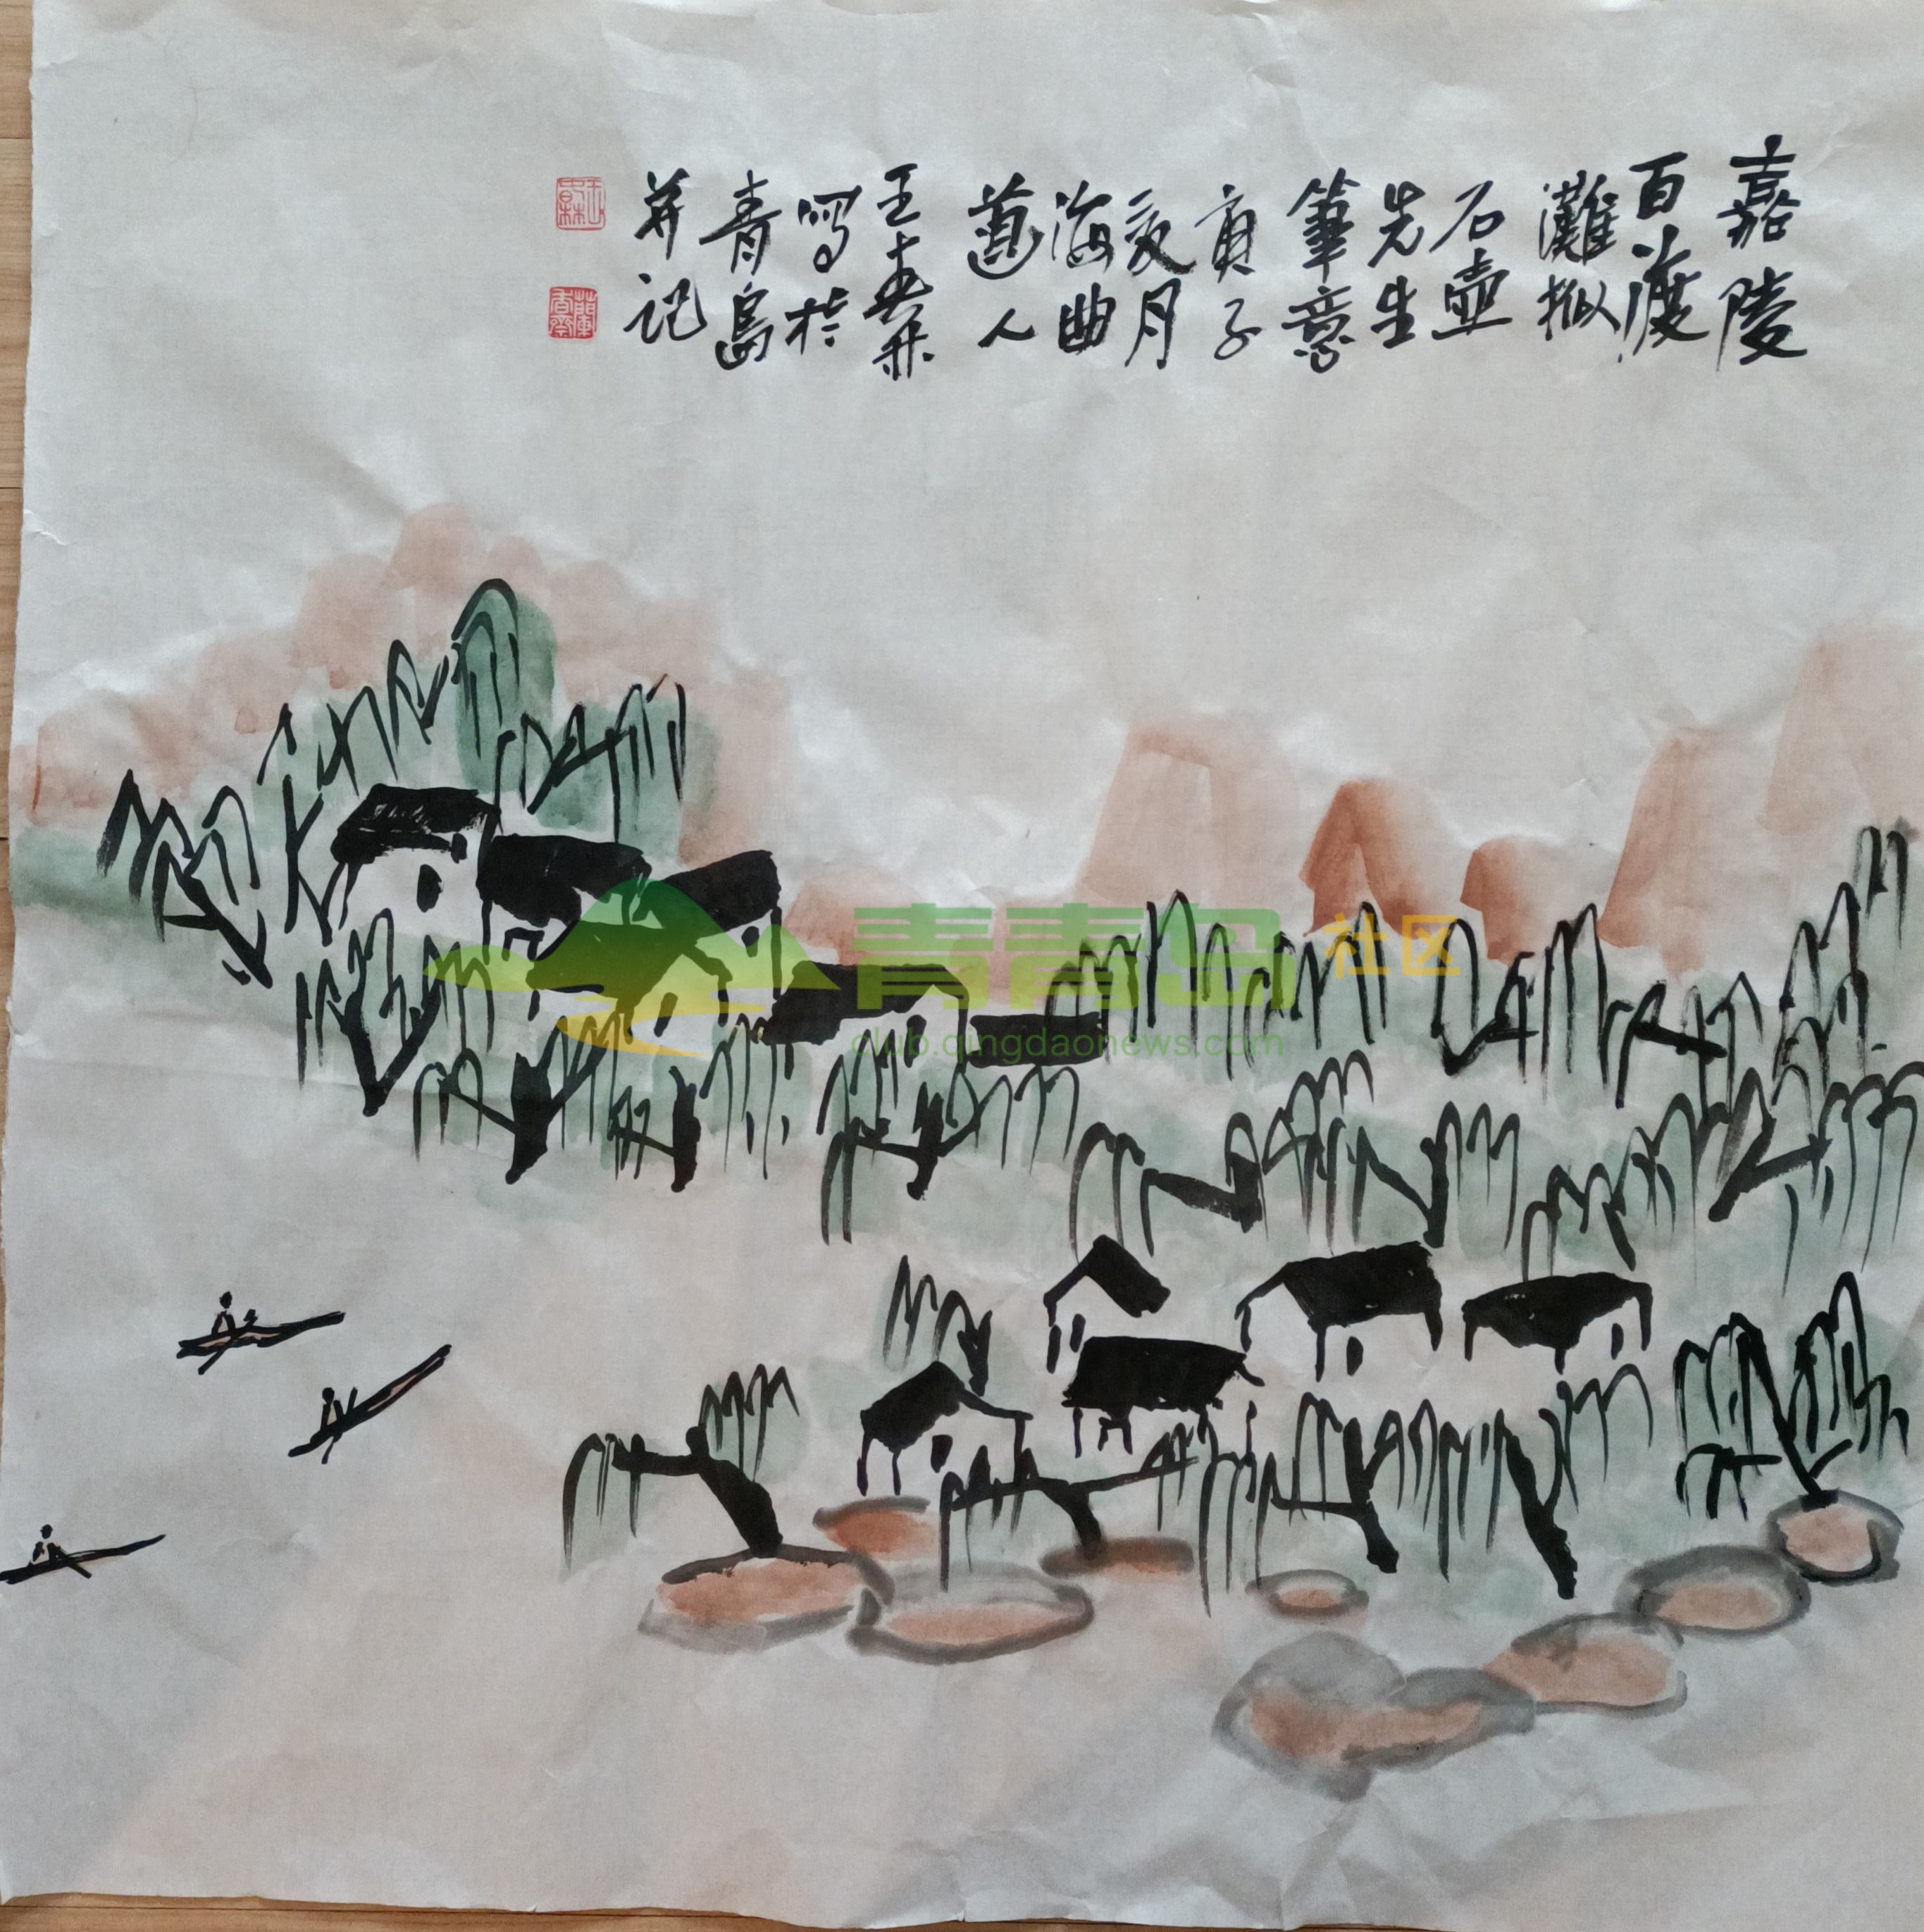 嘉陵
百渡
灘擬
石壷
先生
筆意
庚子
亥月
海曲
道人
王
写於
青島
并记
蘭香齋
青青岛 社区
club.qingdaonews.com